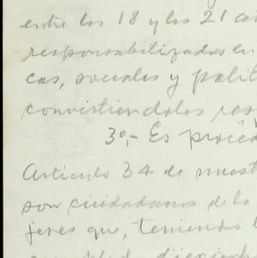 entre los 18 y los 21 a
responsabilizados en
cas, sociales y polit
convirtiendolos res
3º.- Es proce
Articulo 34 de nuest
son ciudadanos de la
jeres que, teniendo